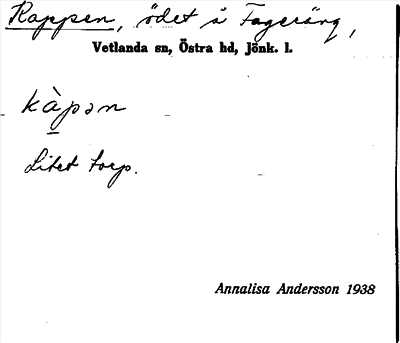 Kappen, ödet å Fageräng,
Vetlanda sn, Östra hd, Jönk. l.
kàpən
Litet torp.
Annalisa Andersson 1938